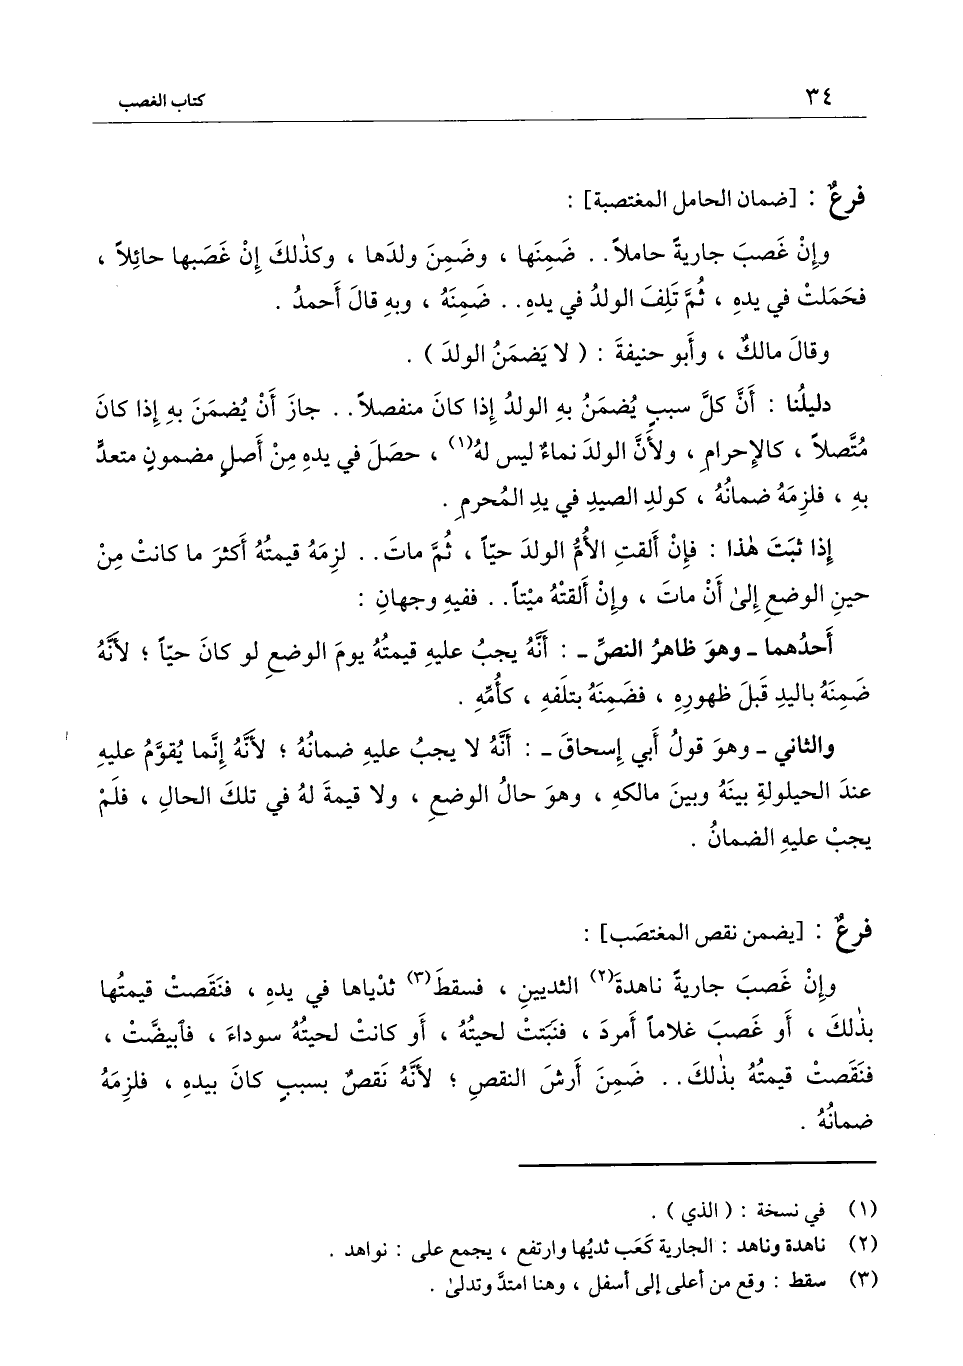 ٣٤
كتاب الغصب
فرعٌ : [ضمان الحامل المغتصبة] :
وإنْ غَصبَ جاريةً حاملاً . . ضَمِنَها ، وضَمِنَ ولدَها ، وكذٰلكَ إنْ غَصَبها حائِلاً ،
فحَمَلتْ في يدهِ ، ثُمَّ تَلِفَ الولدُ في يدِهِ . . ضَمِنَهُ ، وبهِ قالَ أَحمدُ .
وقالَ مالكٌ ، وأَبو حنيفةَ : ( لا يَضمَنُ الولدَ ) .
دليلُنا : أَنَّ كلَّ سببٍ يُضمَنُ بهِ الولدُ إذا كانَ منفصلاً . . جازَ أَنْ يُضمَنَ بهِ إذا كانَ
مُتَّصلاً ، كالإحرامِ ، ولأَنَّ الولدَ نماءٌ ليس لهُ(١) ، حصَلَ في يدِهِ مِنْ أَصلٍ مضمونٍ متعدًّ
بهِ ، فلزِمَهُ ضمانُهُ ، كولدِ الصيدِ في يدِ المُحرمِ .
إذا ثبَتَ هٰذا : فإنْ أَلقتِ الأُمُّ الولدَ حيّاً ، ثُمَّ ماتَ . . لزِمَهُ قيمتُهُ أَكثرَ ما كانتْ مِنْ
حينِ الوضعِ إلىٰ أَنْ ماتَ ، وإنْ أَلقتْهُ ميْتاً . . ففيهِ وجهانِ :
أَحدُهما ـ وهوَ ظاهرُ النصِّ ـ : أَنَّهُ يجبُ عليهِ قيمتُهُ يومَ الوضعِ لو كانَ حيّاً ؛ لأَنَّهُ
ضَمِنَهُ باليدِ قَبلَ ظهورِهِ ، فضَمِنَهُ بتلَفهِ ، كأُمِّهِ .
والثاني ـ وهوَ قولُ أَبي إسحاقَ ـ : أَنَّهُ لا يجبُ عليهِ ضمانُهُ ؛ لأَنَّهُ إنَّما يُقوَّمُ عليهِ
عندَ الحيلولةِ بينَهُ وبينَ مالكهِ ، وهوَ حالُ الوضعِ ، ولا قيمةَ لهُ في تلكَ الحالِ ، فلَمْ
يجبْ عليهِ الضمانُ .
فرعٌ : [يضمن نقص المغتصَب] :
وإنْ غَصبَ جاريةً ناهدةَ(٢) الثديينِ ، فسقطَ(٣) ثدْياها في يدهِ ، فنَقَصتْ قيمتُها
بذٰلكَ ، أو غَصبَ غلاماً أَمردَ ، فنبَتتْ لحيتُهُ ، أو كانتْ لحيتُهُ سوداءَ ، فٱبيضَّتْ ،
فنَقَصتْ قيمتُهُ بذٰلكَ . . ضَمِنَ أَرشَ النقصِ ؛ لأَنَّهُ نَقصٌ بسببٍ كانَ بيدهِ ، فلزِمَهُ
ضمانُهُ .
(١) في نسخة : ( الذي ) .
(٢) ناهدة وناهد : الجارية كَعَب ثديُها وارتفع ، يجمع على : نواهد .
(٣) سقط : وقع من أعلى إلى أسفل ، وهنا امتدَّ وتدلىٰ .